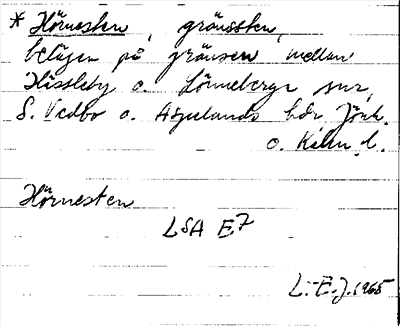 * Hörnesten, gränssten,
belägen på gränsen mellan
Hässleby o. Lönneberga snr,
S. Vedbo o. Aspelands hdr, Jönk.
o. Kalm. l.
Hörnesten
LSA E7
L.-E. J. 1965